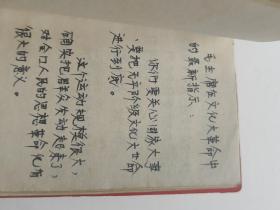 毛主席在文化大革命中
的最新指示：
你们要关心国家大事
，要把无产阶级文化大革命
进行到底。
这个运动规模很大，
确实把群众发动起来了，
对全国人民的思想革命化有
很大的意义。